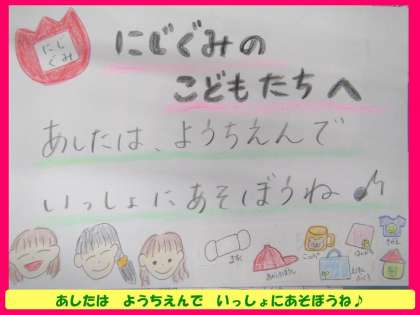 にじ
ぐみ
にじぐみの
こどもたちへ
あしたは、ようちえんで
いっしょにあそぼうね♪
コップ
あしたは　ようちえんで　いっしょにあそぼうね♪